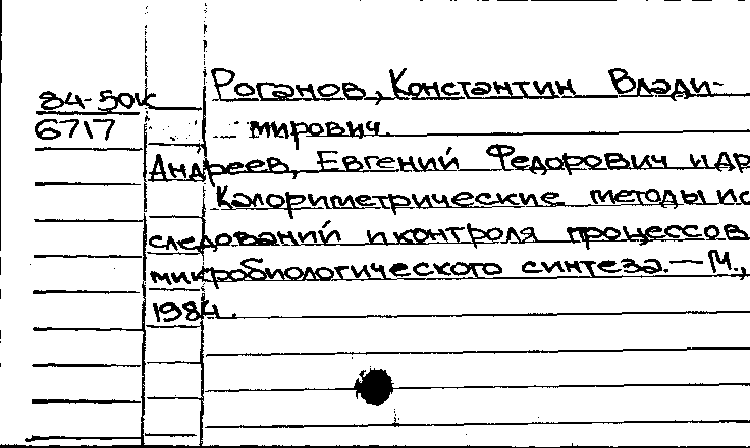 Роганов, Константин Влади-
84-50к
6717
мирович.
Андреев, Евгений Федорович и др
Калориметрические методы ис
следований и контроля процессов
микробиологического синтеза. — М.,
1984.